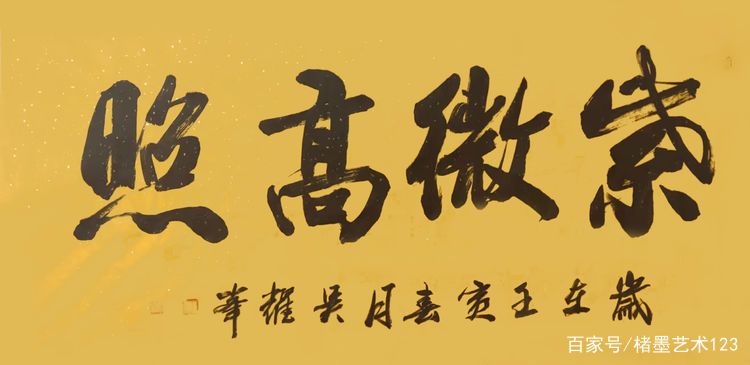 紫微高照
歲在壬寅春月吴耀峯
百家号/楮墨艺术123